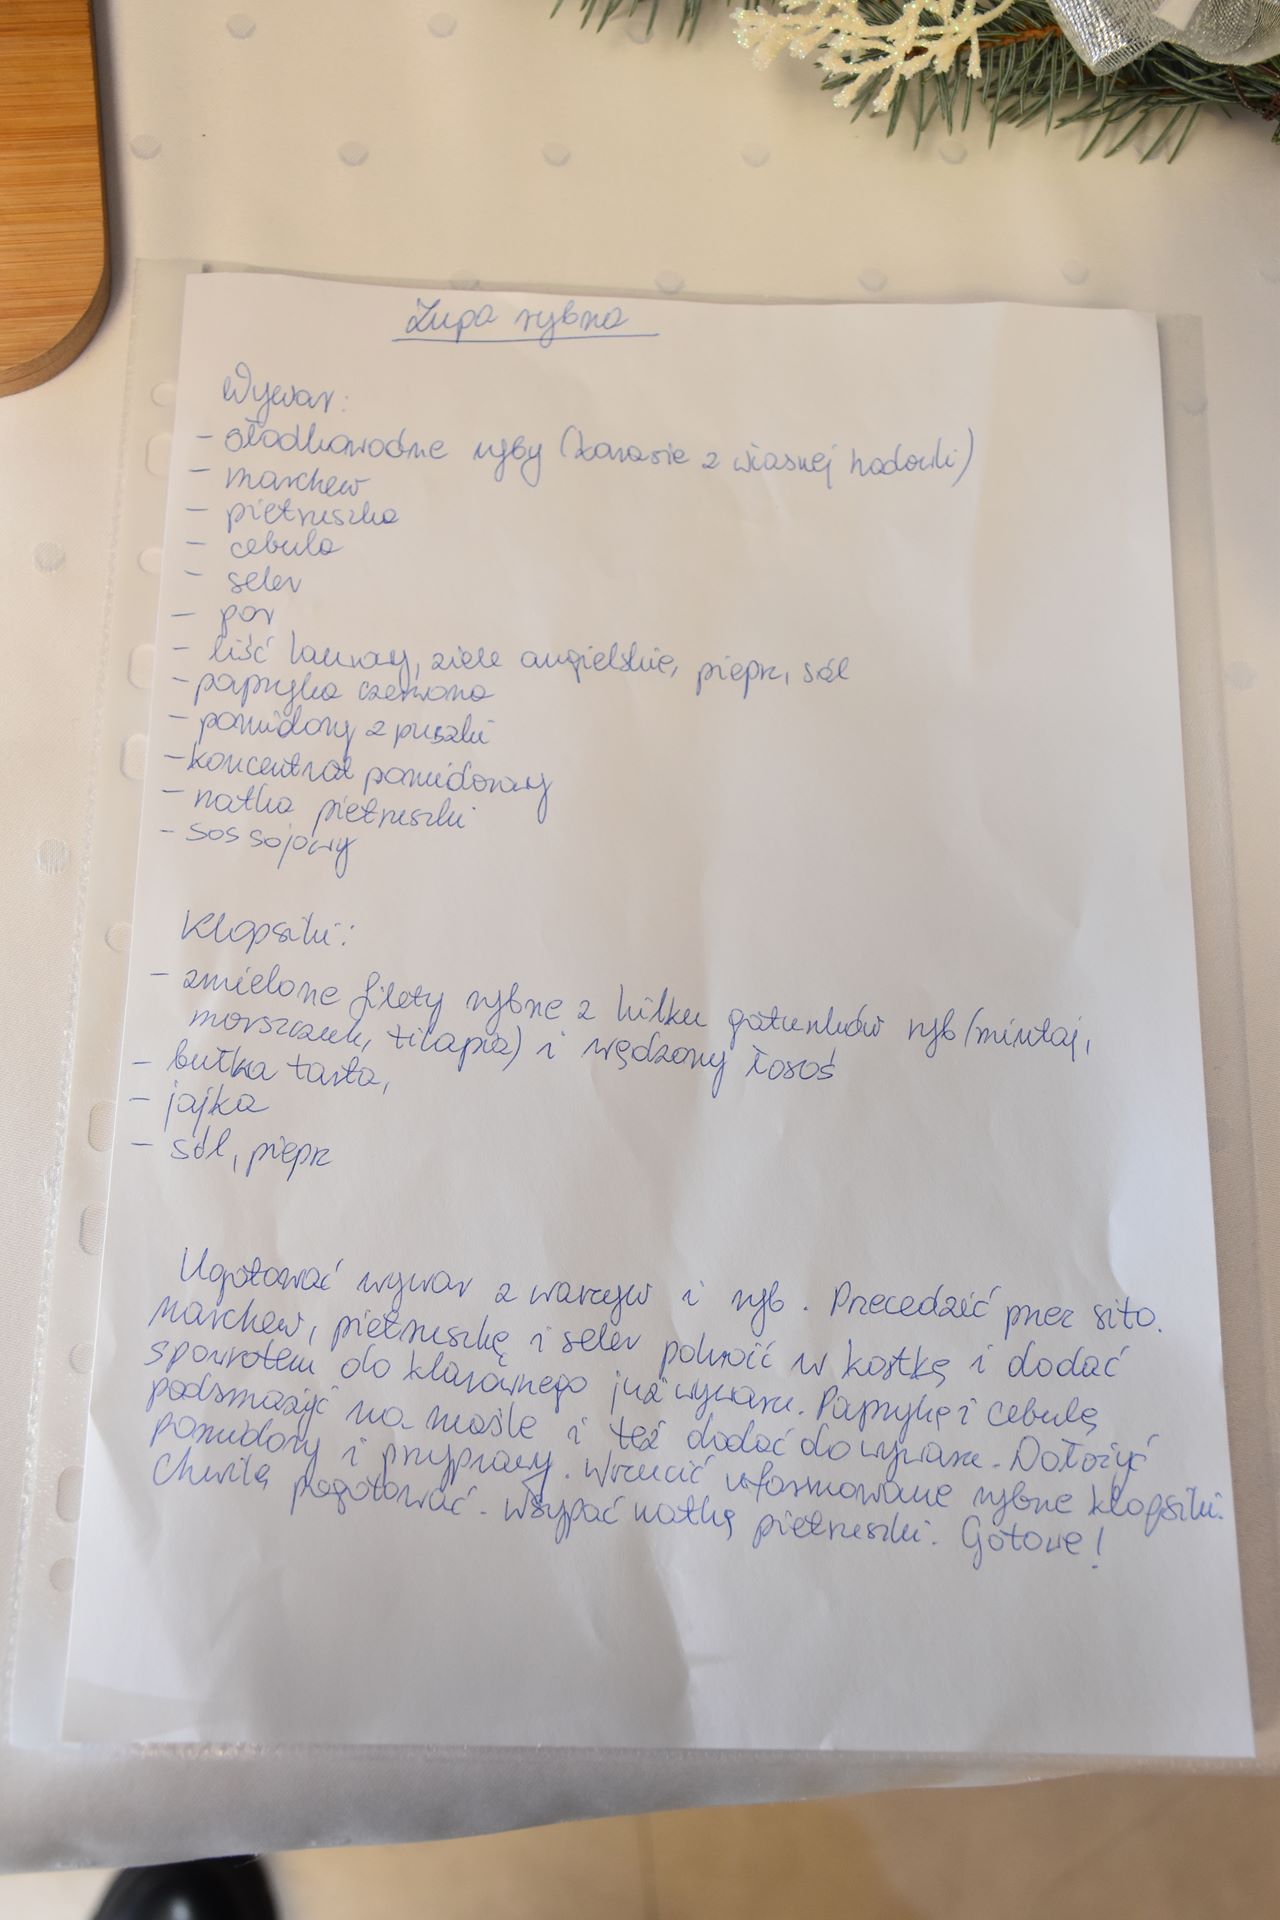 Zupa rybna
Wywar:
- słodkowodne ryby (karasie z własnej hodowli)
- marchew
- pietruszka
- cebula
- seler
- por
- liść laurowy, ziele angielskie, pieprz, sól
- papryka czerwona
- pomidory z puszki
- koncentrat pomidorowy
- natka pietruszki
- sos sojowy
Klopsiki:
- zmielone filety rybne z kilku gatunków ryb (mintaj,
morszczuk, tilapia) i wędzony łosoś
- bułka tarta,
- jajka
- sól, pieprz
Ugotować wywar z warzyw i ryb. Przecedzić przez sito.
Marchew, pietruszkę i seler pokroić w kostkę i dodać
spowrotem do klarownego już wywaru. Paprykę i cebulę
podsmażyć na maśle i też dodać do wywaru. Dołożyć
pomidory i przyprawy. Wrzucić uformowane rybne klopsiki.
Chwilę pogotować. Wsypać natkę pietruszki. Gotowe!